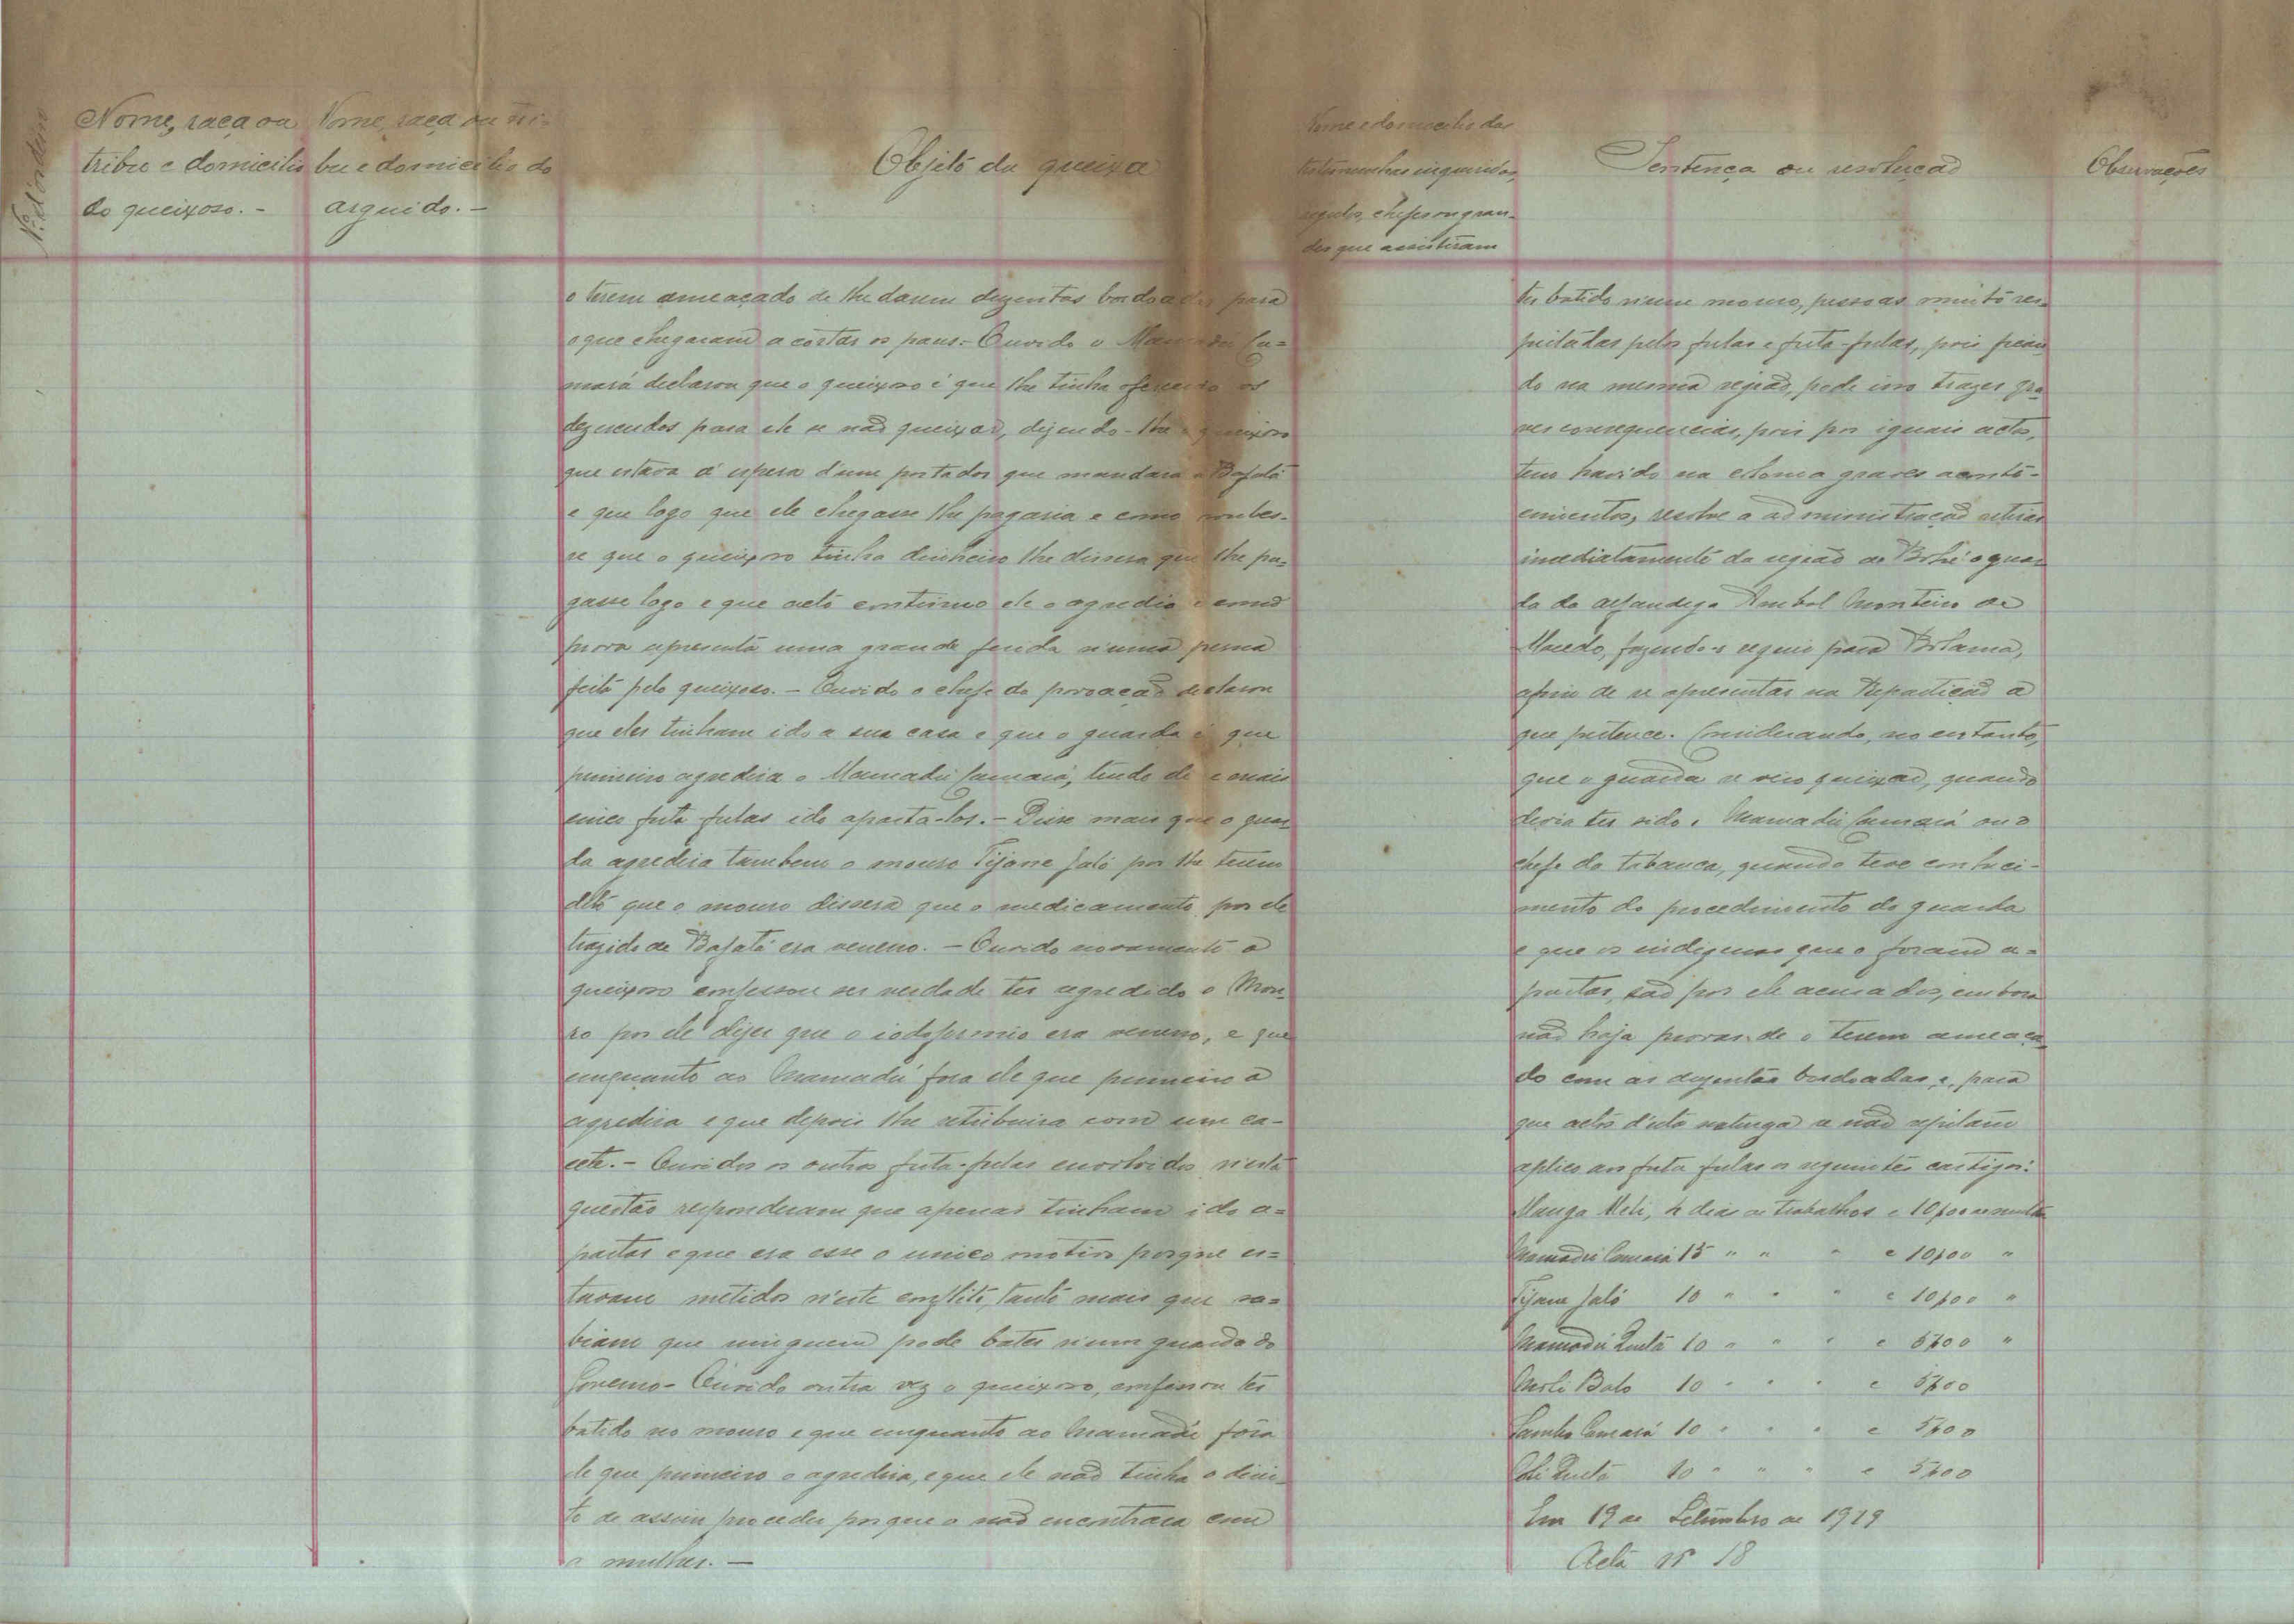 Nº d'ordem
Nome, raça ou
tribu e domicilio
do queixoso. -
Nome, raça ou tri-
bu e domicilio do
arguido. -
Objéto da queixa
Nome e domicilio das
testemunhas inqueridas,
regulos, chefes ou gran-
des que assistiram
Sentença ou resolução
Observações
o terem ameaçado de lhe darem duzentas bordoadas para
o que chegaram a cortar os paus. - Ouvido o Mamadú Ca-
mará declarou que o queixoso é que lhe tinha oferecido os
dez escudos para ele se não queixar, dizendo-lhe o queixoso
que estava á espera d'um portador que mandara a Bafatá
e que logo que ele chegasse lhe pagaria e como soubes-
se que o queixoso tinha dinheiro lhe dissera que lhe pa-
gasse logo e que acto continuo ele o agredio e como
prova apresenta uma grande ferida n'uma perna
feita pelo queixoso. - Ouvido o chefe da povoação declarou
que eles tinham ido a sua casa e que o guarda é que
primeiro agredira o Mamadú Camará, tendo ele e mais
cinco futa-fulas ido aparta-los. - Disse mais que o guar-
da agredira tambem o mouro Tijane Jaló por lhe terem
dito que o mouro dissera que o medicamento por ele
trazido de Bafatá era veneno. - Ouvido novamente o
queixoso confessou ser verdade ter agredido o Mou-
ro por ele dizer que o iodoformio era veneno, e que
emquanto ao Mamadú fora ele que primeiro o
agredira e que depois lhe retribuira com um ca-
cete. - Ouvidos os outros futa-fulas envolvidos n'esta
questão responderam que apenas tinham ido a-
partar e que era esse o unico motivo porque es-
tavam metidos n'este conflito, tanto mais que sa-
biam que ninguem pode bater n'um guarda do
Governo - Ouvido outra vez o queixoso, confessou ter
batido no mouro e que emquanto ao Mamadú fôra
ele que primeiro o agredira, e que ele não tinha o direi-
to de assim proceder porque o não encontrara com
a mulher. -
ter batido n'um mouro, pessoas muito res-
peitadas pelos fulas e futa-fulas, pois fican-
do na mesma região, pode isso trazer gra-
ves consequencias, pois por iguais actos,
tem havido na colonia graves aconte-
cimentos, resolve a administração retirar
imediatamente da região do Bohé o guar-
da da alfandega Anibal Monteiro de
Macedo, fazendo-o seguir para Bolama,
afim de se apresentar na Repartição a
que pertence. Considerando, no entanto,
que o guarda se veio queixar, quando
devia ter sido o Mamadú Camará ou o
chefe da tabanca, quando teve conheci-
mento do procedimento do guarda
e que os indigenas que o foram a-
partar, são por ele acusados, embora
não haja provas de o terem ameaça-
do com as duzentas bordoadas, e, para
que actos d'esta natureza se não repitam
aplico aos futa fulas os seguintes castigos:
Manga Meli, dias de trabalhos e 10$00 de multa
Mamadú Camará 15 " " " e 10$00 "
Tijane Jaló 10 " " " e 10$00 "
Mamadú 10 " " " e 5$00 "
Balo 10 " " " e 5$00
Samba Camará 10 " " " e 5$00
10 " " " e 5$00
Em 19 de Setembro de 1919
Acta nº 18